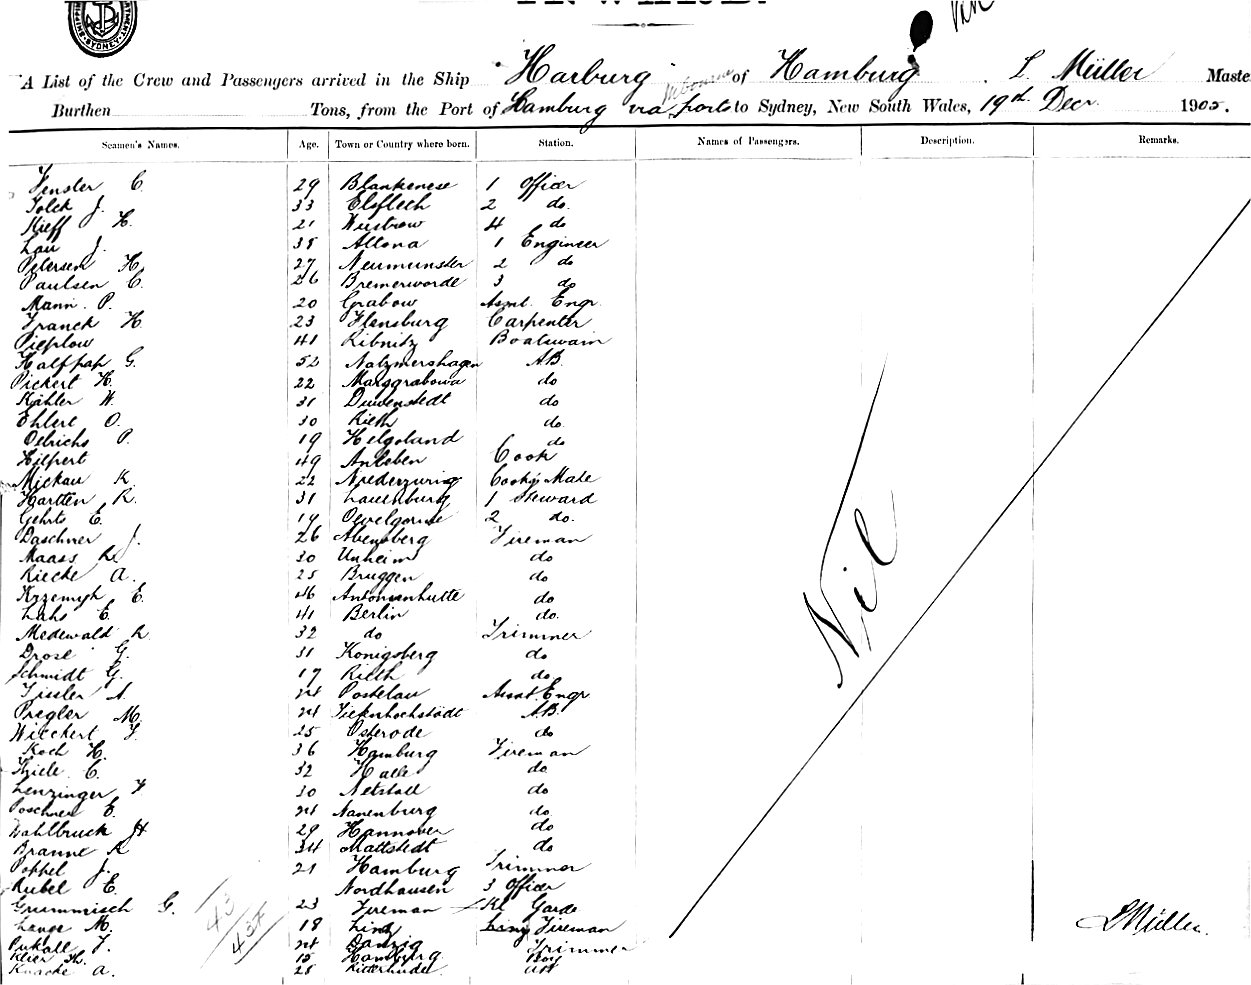 INWARD.
A List of the Crew and Passengers arrived in the Ship Harburg of Hamburg. L. Müller Maste
Burthen Tons, from the Port of Hamburg via ports to Sydney, New South Wales, 19th Decr. 1905.
Seamen's Names. Age. Town or Country where born. Station. Names of Passengers. Description. Remarks.
Fensler C. 29 Blankenese 1 Officer
Tolck J. 33 Elsfleth 2 do.
Kieff H. 21 Wustrow 4 do
Lau J. 38 Altona 1 Engineer
Petersen H. 27 Neumunster 2 do
Paulsen C. 26 Bremervorde 3 do
Mann. P. 20 Grabow Asst. Engr.
Franck H. 23 Flensburg Carpenter
Pieplow 41 Ribnitz Boatswain
Halfpap G. 52 Natzmershagen AB.
Pickert H. 22 Marggrabowa do
Kähler W. 31 Duvenstedt do
Ehlert O. 30 Rieth do.
Oelrichs P. 19 Helgoland do
Hilpert 49 Auleben Cook
Mickau K. 22 Cook's Mate
Hartten R. 31 Lauenburg 1 Steward
Gehrts E. 19 Oevelgonne 2 do.
Daschner J. 26 Abensberg Fireman
Maass R. 30 Unheim do
Riecke A. 25 Bruggen do
E. 46 Antonienhutte do
Lahs E. 41 Berlin do.
Medewald R. 32 do Trimmer
Drose G. 31 Konigsberg do
Schmidt G. 17 Rieth do
Tissler A. 24 Postelau Assst. Engr
Pregler M. 24 AB.
Wieckert F. 25 Osterode do
Koch H. 36 Hamburg Fireman
Thiele C. 32 Halle do
Lenzinger F 30 Netstall do
Poschner E. 24 Nauenburg do
Dahlbruck H 29 Hannover do
Branne R 34 Mattstedt do
Poppel J. 21 Hamburg Trimmer
Rubel E. Nordhausen 3 Officer
Grummisch G. 23 Fireman Garde
Lange M. 18 Linz Fireman
Pukall F. 24 Danzig Trimmer
Reier Th. 15 Hamburg. Boy
Knacke A. 28 Ritterhude
Nil
43
L Müller.